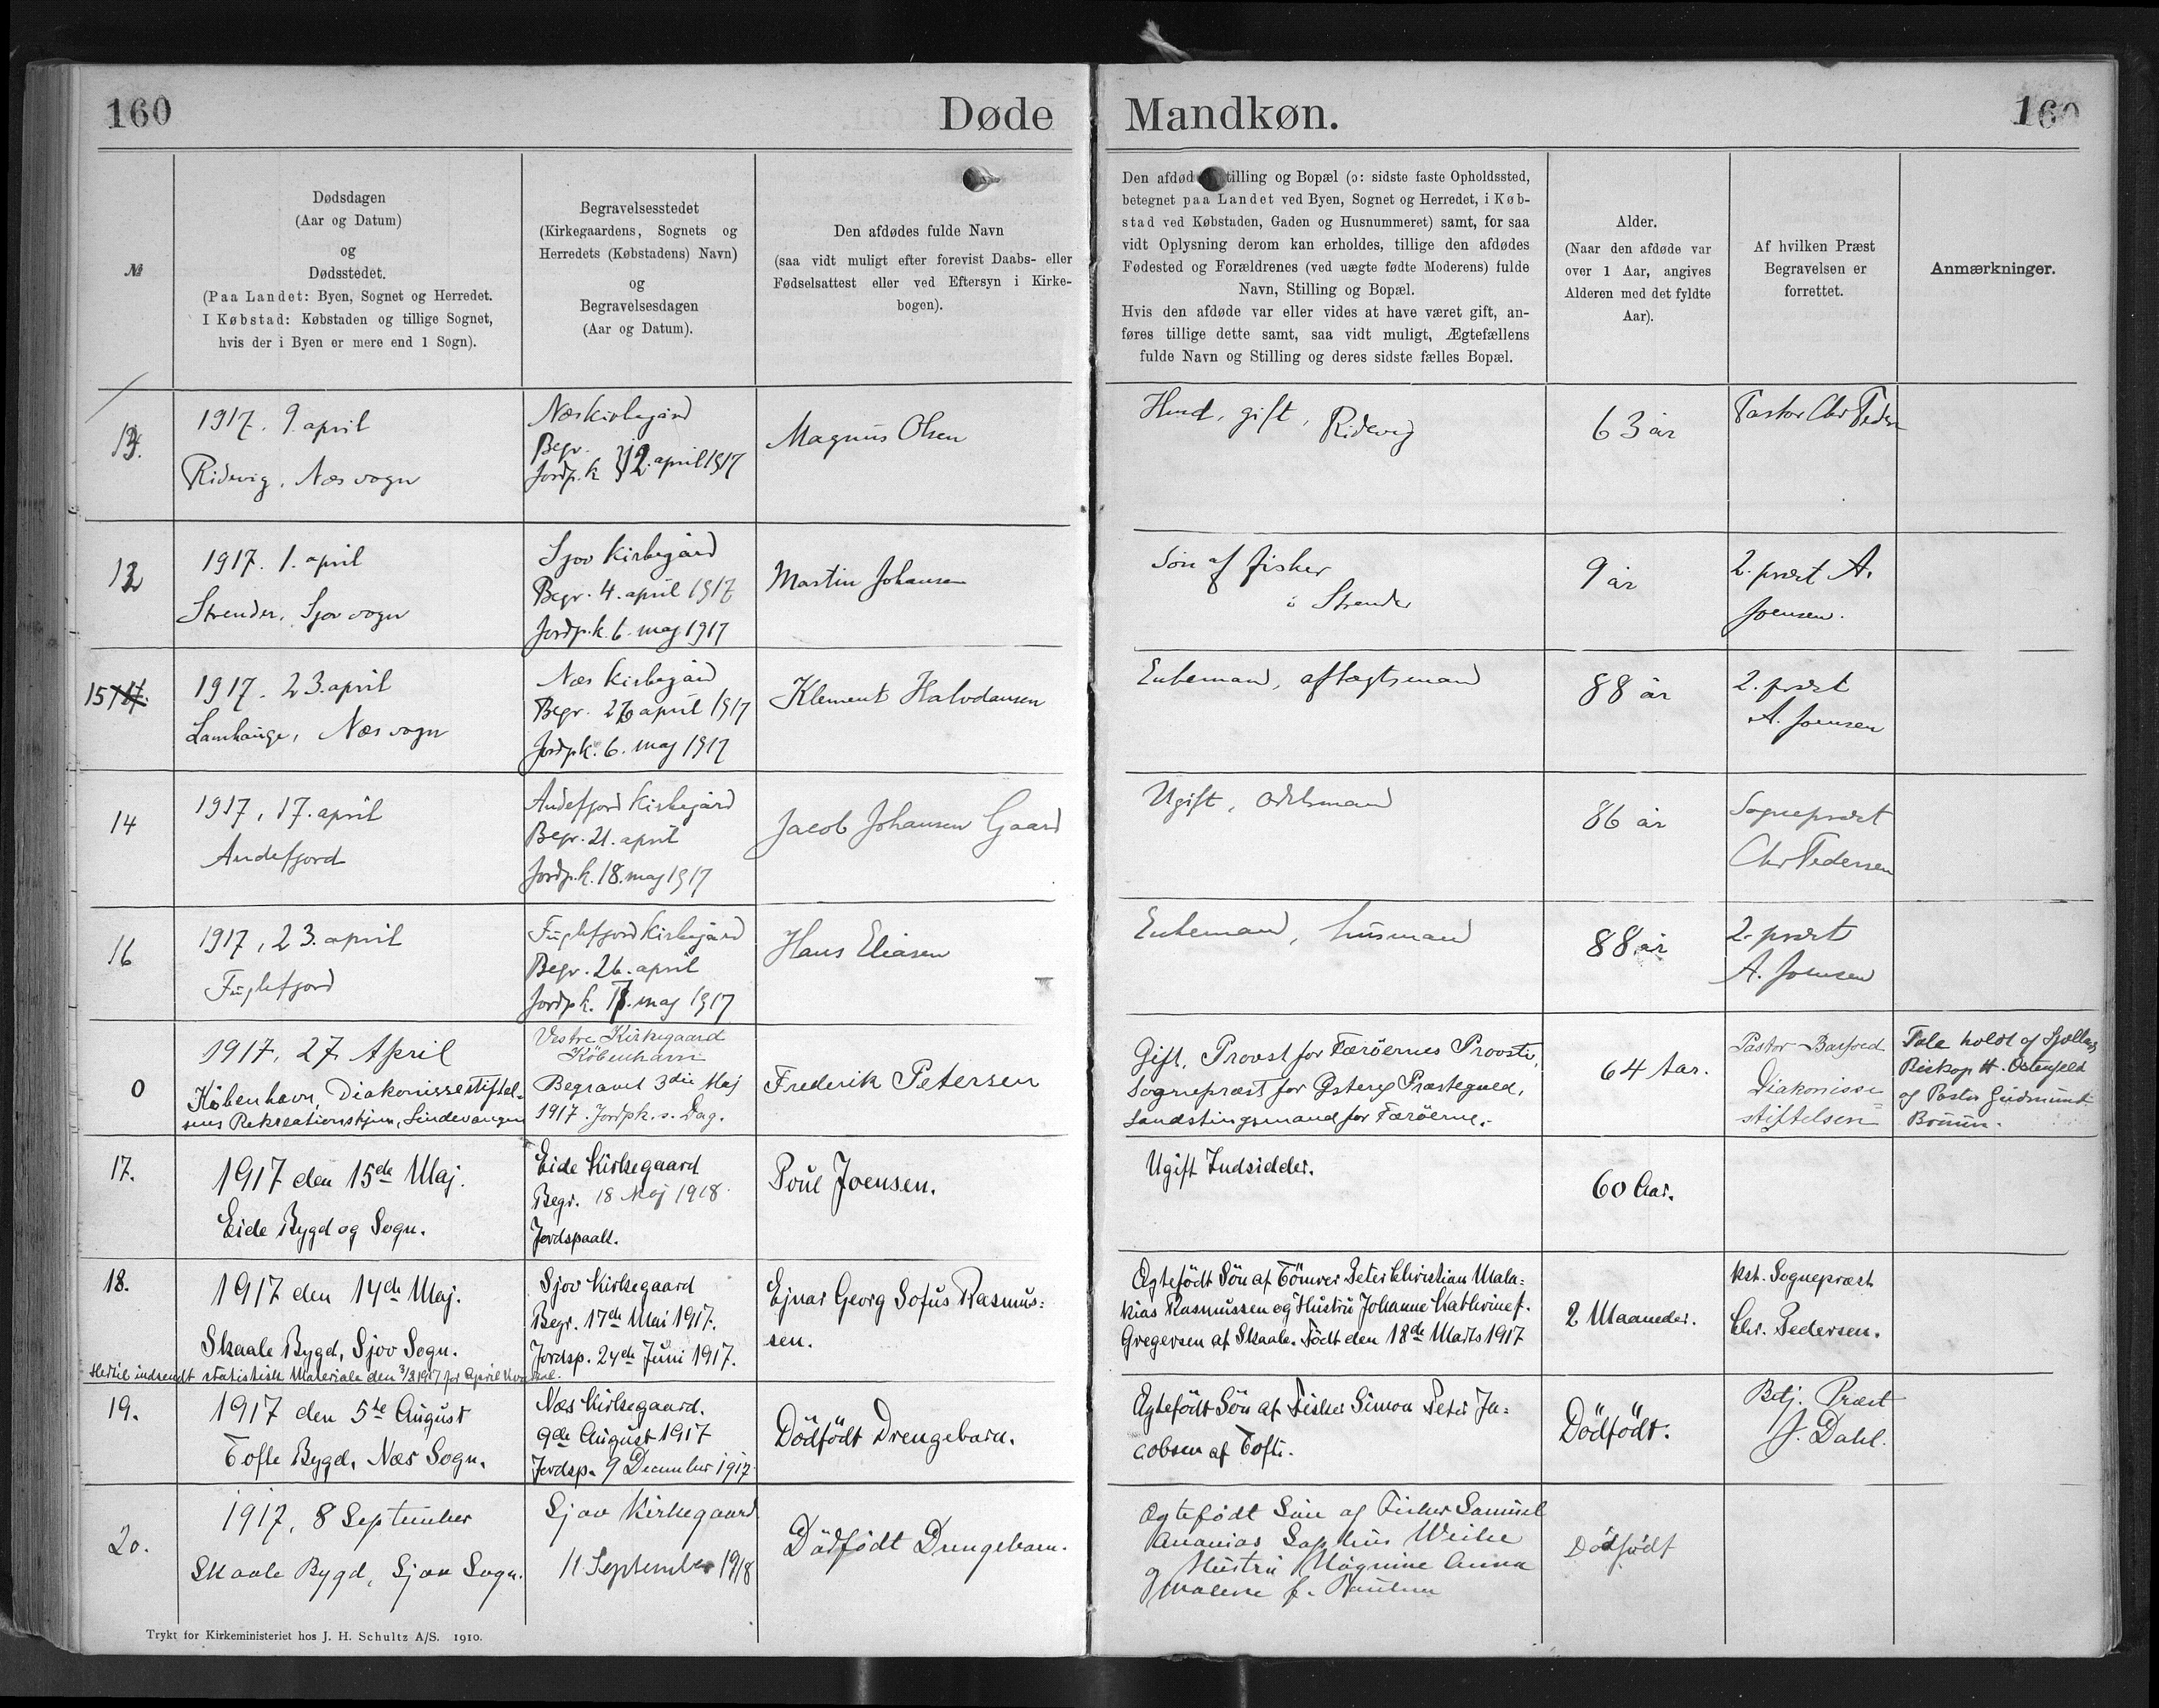 160
Døde
Mandkøn.
160
№
Dødsdagen
(Aar og Datum)
og
Dødsstedet.
(Paa Landet: Byen, Sognet og Herredet.
I Købstad: Købstaden og tillige Sognet,
hvis der i Byen er mere end 1 Sogn).
Begravelsesstedet
(Kirkegaardens, Sognets og
Herredets (Købstadens) Navn)
og
Begravelsesdagen
(Aar og Datum).
Den afdødes fulde Navn
(saa vidt muligt efter forevist Daabs- eller
Fødselsattest eller ved Eftersyn i Kirke-
bogen).
Den afdød tilling og Bopæl (ɔ: sidste faste Opholdssted,
betegnet paa Landet ved Byen, Sognet og Herredet, i Køb-
stad ved Købstaden, Gaden og Husnummeret) samt, for saa
vidt Oplysning derom kan erholdes, tillige den afdødes
Fødested og Forældrenes (ved uægte fødte Moderens) fulde
Navn, Stilling og Bopæl.
Hvis den afdøde var eller vides at have været gift, an-
føres tillige dette samt, saa vidt muligt, Ægtefællens
fulde Navn og Stilling og deres sidste fælles Bopæl.
Alder.
(Naar den afdøde var
over 1 Aar, angives
Alderen med det fyldte
Aar).
Af hvilken Præst
Begravelsen er
forrettet.
Anmærkninger.
13.
1917. 9. april
Ridevig. Næs sogn
Næs kirkegård
Begr.
Jordp.k } 12. april 1917
Magnus Olsen
gift, Ridevig
63 år
Pastor Chr Peder
12
1917. 1. april
Strender, Sjov sogn
Sjov kirkegård
Begr. 4. april 1917
Jordp.k. 6. maj 1917
Martin Johansen
Søn af fisker
i Strender
9 år
2. præst A.
Joensen.
15
1917. 23. april
Lamhauge, Næs sogn
Næs kirkegård
Begr. 26 april 1917
Jordpk. 6. maj 1917
Klement Halvdansen
Enkemand, aftægtsmand
88 år
2. præst
A. Joensen
14
1917, 17. april
Andefjord
Andefjord kirkegård
Begr. 21. april
Jordp.k. 18. maj 1917
Jacob Johansen Gaard
Ugift, odelsmand
86 år
Sognepræst
Chr Pedersen
16
1917, 23. april
Fuglefjord
Fuglefjord kirkegård
Begr. 26. april
Jordp k. maj 1917
Hans Eliasen
Enkemand, husmand
88 år
2. præst
A. Joensen
0
1917, 27 April
København, Diakonissestiftel-
sens Rekreationshjem, Lindevangen
Vestre Kirkegaard
København
Begravet 3die Maj
1917 Jordpk. s. Dag.
Frederik Petersen
Gift, Provst for Færöernes Provsti,
Sognepræst for Østerøs Præstegæld,
Landstingsmand for Færöerne.
64 Aar.
Pastor Barfoed
Diakonisse=
stiftelsen
Tale holdt af Sjællands
Biskop H. Ostenfeld
og Pastor Gudmund
Bruun.
17.
1917 den 15de Maj.
Eide Bygd og Sogn.
Eide Kirkegaard
Begr. 18 Maj 1918
Jordspaak.
Poul Joensen.
Ugift Indsidder.
60 Aar.
18.
1917 den 14de Maj.
Skaale Bygd, Sjov Sogn.
Sjov Kirkegaard
Begr. 17de Mai 1917.
Jordsp. 24de Juni 1917.
Ejnar Georg Sofus Rasmus=
sen.
Ægtefödt Sön af Tömrer Peter Christian Mala=
kias Rasmussen og Hustru Johanne Kathrine f.
Gregersen af Skaale. Födt den 18de Marts 1917
2 Maaneder.
kst. Sognepræst
Chr. Pedersen.
Hertil indsendt statistisk Materiale den 3/8 1917 for April Kvartal.
19.
1917 den 5te August
Tofte Bygd, Næs Sogn.
Næs Kirkegaard.
9de August 1917
Jordsp. 9 December 1917
Dödfödt Drengebarn.
Ægtefödt Sön af Fisker Simon Peter Ja=
cobsen af Tofte.
Dödfödt.
Betj. Præst
J. Dahl.
20.
1917, 8 September
Skaale Bygd, Sjov Sogn.
Sjov Kirkegaard
11 September 1918
Dödfödt Drengebarn.
Ægtefödt Sön af Fisker Samuel
Ananias Weihe
og Hustru Magnine Anna
Malene f. Poulsen
Dödfödt
Trykt for Kirkeministeriet hos J. H. Schultz A/S. 1910.